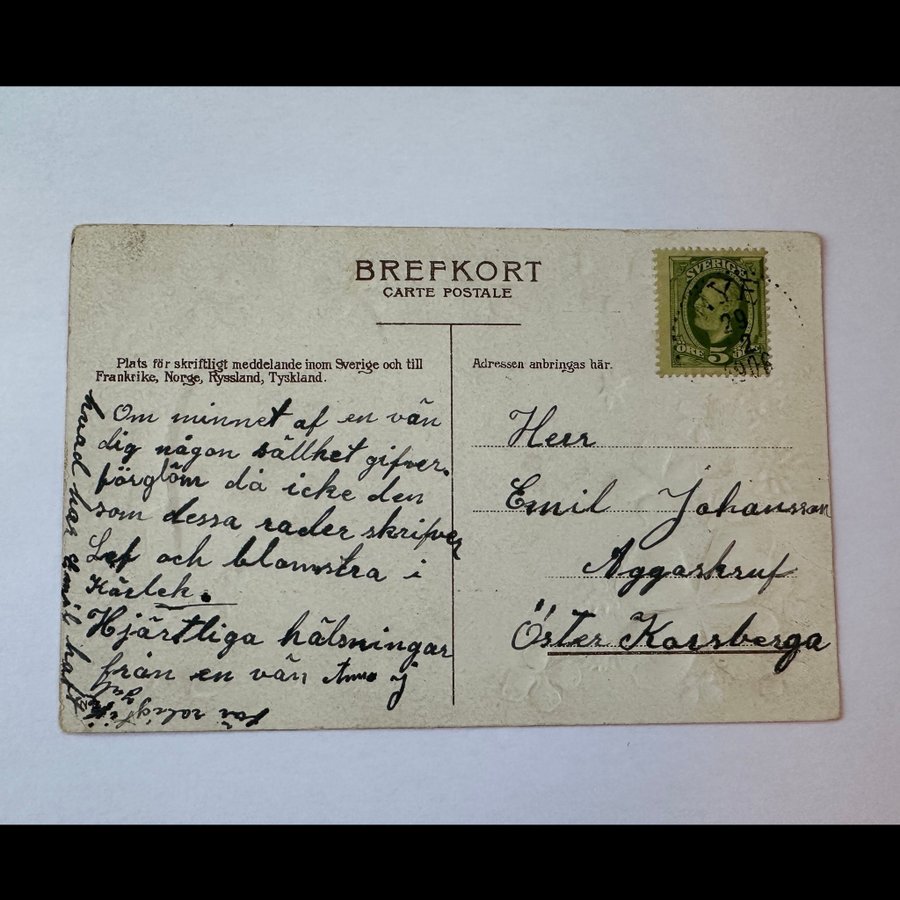 BREFKORT
CARTE POSTALE
Plats för skriftligt meddelande inom Sverige och till
Frankrike, Norge, Ryssland, Tyskland.
Om minnet af en vän
dig någon sällhet gifver.
förglöm då icke den
som dessa rader skrifver
Lef och blomstra i
Kärlek.
Hjärtliga hälsningar
från en vän Anna J
hvad har Emil haft
för roligt i
Jul
Adressen anbringas här.
Herr
Emil Johansson
Aggaskruf
Öster Korsberga
SVERIGE
ÖRE 5
29
2